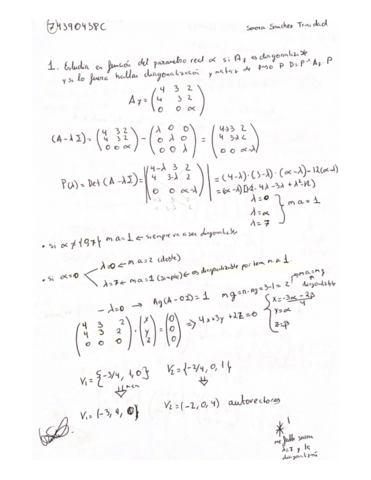 74390438C Sanchez Trinidad
1. Estudia en función del parametro real α si A₇ es diagonalizable
y si lo fuera hallar diagonalización y matriz de paso P D=P⁻¹·A₇·P
A₇ = (4 3 2; 4 3 2; 0 0 α)
(A-λI) = (4 3 2; 4 3 2; 0 0 α) - (λ 0 0; 0 λ 0; 0 0 λ) = (4-λ 3 2; 4 3-λ 2; 0 0 α-λ)
P(λ) = Det(A-λI) = |4-λ 3 2; 4 3-λ 2; 0 0 α-λ| = (4-λ)·(3-λ)·(α-λ)-12(α-λ)
=(α-λ)[12-4λ-3λ+λ²-12]
λ=0
λ=α
λ=7
m a = 1
• si α≠{0,7} m a=1 ← siempre va a ser diagonalizable
• si α=0
λ=0 ← m a=2 (doble)
λ=7 ← m a=1 (simple) ← es diagonalizable por tener m a 1.
- λ=0 → Rg(A-0I)=1 mg=n-rg=3-1=2 ma=mg diagonalizable
(4 3 2; 4 3 2; 0 0 0)·(x; y; z) = (0; 0; 0) ⇒ 4x+3y+2z=0
x=-3α-2β/4
y=α
z=β
V₁={-3/4, 1, 0} V₂={-2/4, 0, 1}
V₁=(-3, 4, 0) V₂=(-2, 0, 4) autovectores
me falta sacar
λ=7 y la